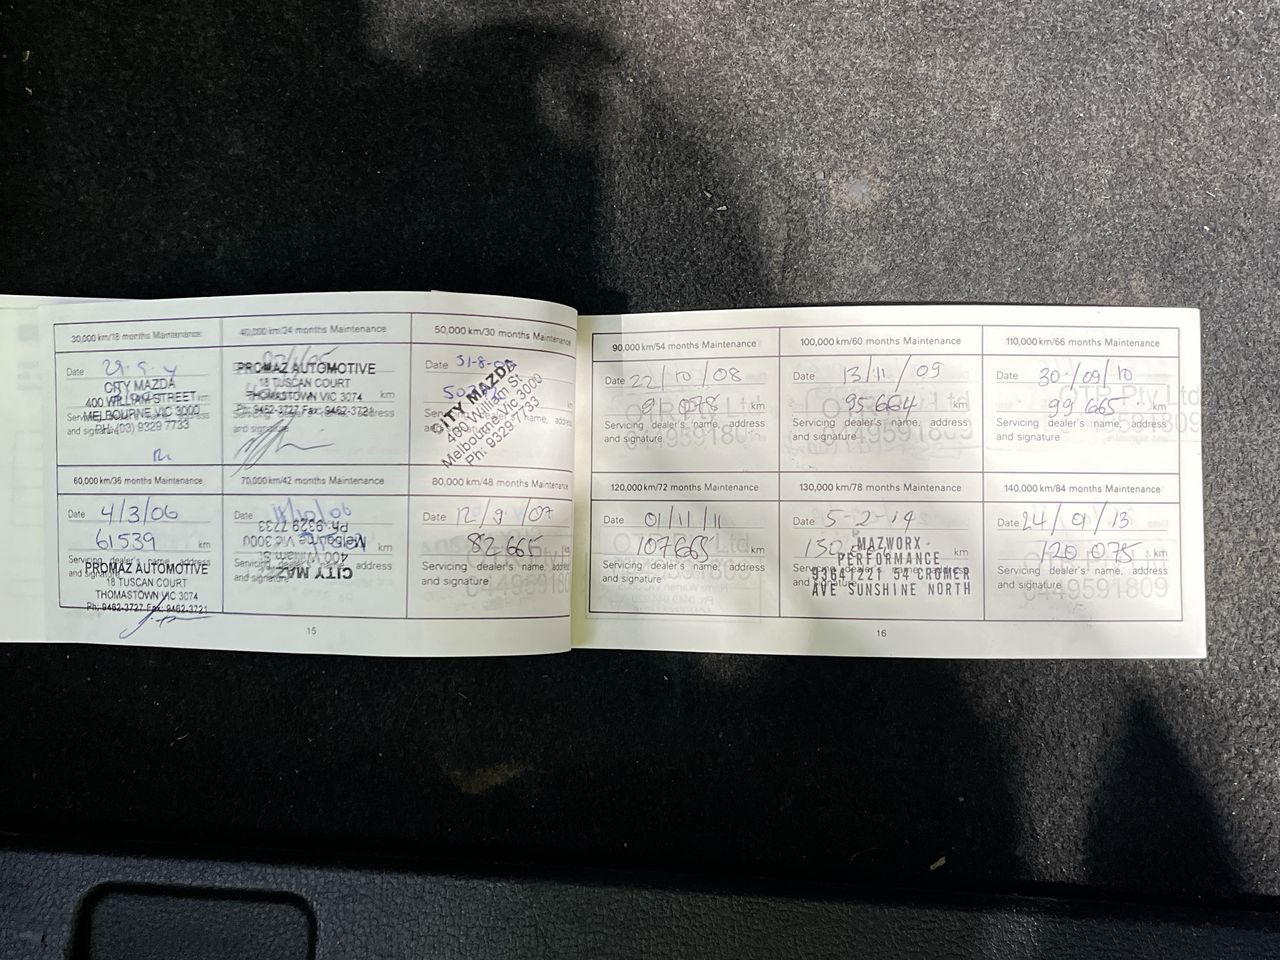 30,000 km/18 months Maintenance
Date
CITY MAZDA
400 WILLIAM STREET
MELBOURNE VIC 3000
PH: (03) 9329 7733
40,000 km/24 months Maintenance
PROMAZ AUTOMOTIVE
18 TUSCAN COURT
THOMASTOWN VIC 3074
km
Ph: 9462-3727 Fax: 9462-3721
and signature
50,000 km/30 months Maintenance
Date 31-8-
CITY MAZDA
400 William St
Melbourne Vic 3000
Ph: 9329 7733
name, address
60,000 km/36 months Maintenance
Date 4/3/06
61539 km
Servicing dealer's name, address
and signature
PROMAZ AUTOMOTIVE
18 TUSCAN COURT
THOMASTOWN VIC 3074
Ph: 9462-3727 Fax: 9462-3721
70,000 km/42 months Maintenance
Date /06
Ph 9329 7733
Melbourne Vic 3000
400 William St
CITY MAZ
Servicing address
and signature
80,000 km/48 months Maintenance
Date 12/9/07
82 665
Servicing dealer's name, address
and signature
15
90,000 km/54 months Maintenance
Date 22/10/08
km
Servicing dealer's name, address
and signature
100,000 km/60 months Maintenance
Date 13/11/09
95 664 km
Servicing dealer's name, address
and signature
110,000 km/66 months Maintenance
Date 30/09/10
99 665 km
Servicing dealer's name, address
and signature
120,000 km/72 months Maintenance
Date 01/11/11
107665 km
Servicing dealer's name, address
and signature
130,000 km/78 months Maintenance
Date 5-2-14
km
MAZWORX
PERFORMANCE
93641221 54 CROMER
AVE SUNSHINE NORTH
140,000 km/84 months Maintenance
Date 24/01/13
120 075 km
Servicing dealer's name, address
and signature
16